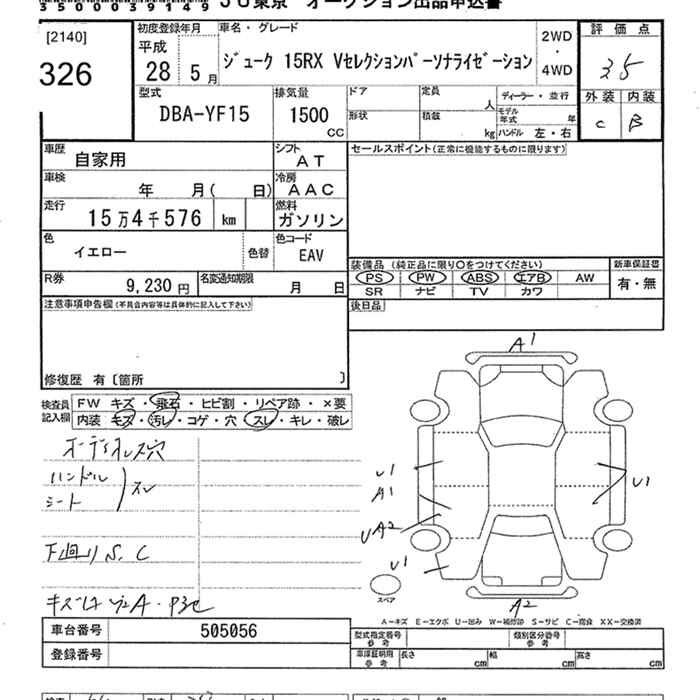 35000039149 JU東京 オークション出品申込書
[2140]
326
初度登録年月
平成
28 5月
車名・グレード
ジューク 15RX Vセレクションパーソナライゼーション
2WD
・
4WD
評価点
3.5
外装 内装
C B
型式
DBA-YF15
排気量
1500
CC
ドア
形状
定員
人
積載
kg
ディーラー・並行
モデル年式 年
ハンドル 左・右
車歴
自家用
シフト
AT
車検
年 月( 日)
冷房
AAC
走行
15万4千576 km
燃料
ガソリン
色
イエロー
色替
色コード
EAV
R券
9,230円
名変通知期限
月 日
セールスポイント(正常に機能するものに限ります)
装備品 (純正品に限り○をつけてください)
PS PW ABS エアB AW
SR ナビ TV カワ
新車保証書
有・無
後日品
注意事項申告欄(不具合内容等は具体的に記入して下さい)
修復歴 有〔箇所 〕
検査員
記入欄
FW キズ・飛石・ヒビ割・リペア跡・×要
内装 キズ・汚レ・コゲ・穴・スレ・キレ・破レ
オーディオレス穴
ハンドル
シート
スレ
下廻りS、C
A1
U1
A1
UA2
U1
U1
A2
スペア
A－キズ E－エクボ U－凹み W－補修跡 S－サビ C－腐食 XX－交換済
車台番号 505056
登録番号
型式指定番号
参考
類別区分番号
参考
車庫証明用
参考
長さ cm
幅 cm
高さ cm